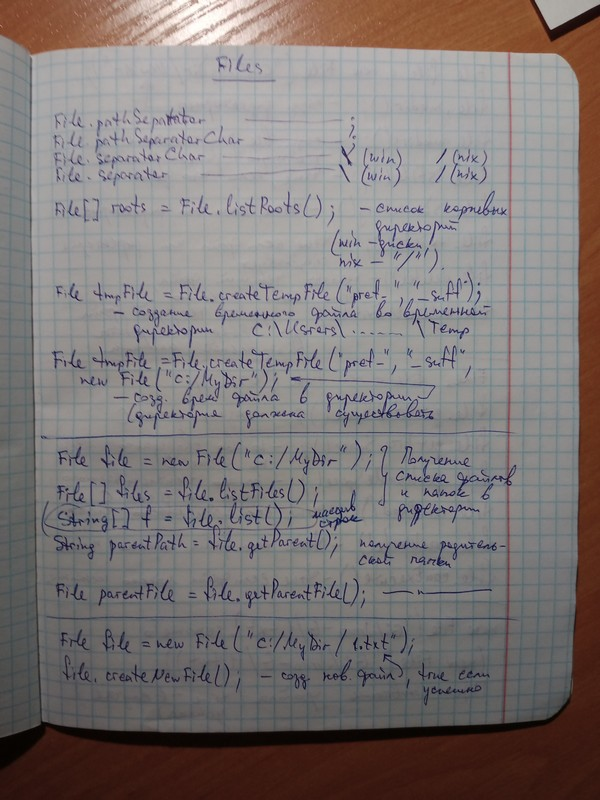 Files
File.pathSeparator ;
File.pathSeparatorChar ;
File.separatorChar \ (win) / (nix)
File.separator \ (win) / (nix)
File[] roots = File.listRoots(); – список корневых
директорий
(win – диски,
nix – "/").
File tmpFile = File.createTempFile("pref-", "_suff");
– создание временного файла во временной
директории C:\Users\.......\Temp
File tmpFile = File.createTempFile("pref-", "_suff",
new File("c:/MyDir");
– созд. врем. файла в директории
(директория должна существовать
File file = new File("c:/MyDir"); } Получение
списка файлов
File[] files = file.listFiles(); и папок в
директории
(String[] f = file.list(); массив
строк
String parentPath = file.getParent(); получение родитель-
ской папки
File parentFile = file.getParentFile(); —"—
File file = new File("c:/MyDir/1.txt");
file.createNewFile(); – созд. нов. файл, true если
успешно